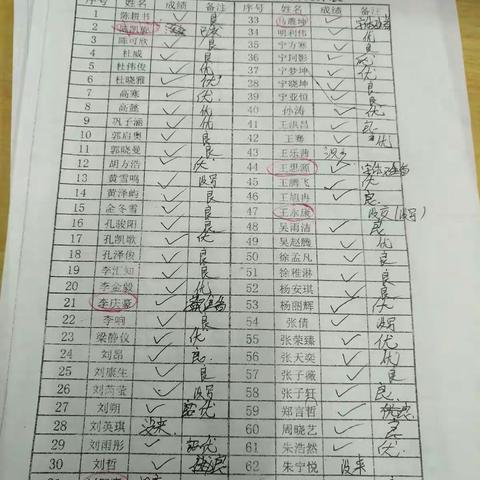 序号 姓名 成绩 备注
1 陈楷书 良
2
3 陈可欣 良
4 杜威 良
5 杜伟俊 优
6 杜晓雅 优
7 高寒 优
8 高懿 优
9 巩子涵 优
10 郭启奥 良
11 郭晓曼 良
12 胡方浩 优
13 黄雪鸣 没写
14 黄泽屿 良
15 金冬雪 优
16 孔骏阳 良
17 孔凯歌 优
18 孔泽俊 良
19 李汇知 良
20 李金毅 优
21 李庆豪
22 李响 良
23 梁静仪 优
24 刘昂 良
25 刘康生 良
26 刘芮莹 没写
27 刘朔 优
28 刘英琪 没来
29 刘雨彤 优
30 刘哲
序号 姓名 成绩 备注
33 马胜坤
34 明利伟 优
35 宁方寒 良
36 宁珂影
37 宁梦坤 良
38 宁晓坤 良
39 宁亚恒 良
40 孙涛 优
41 王洪昌 良
42 王骞 优
43 王乐茜
44 王思源
45 王腾飞 优
46 王旭冉 良
47 王永康 没交(没写)
48 吴雨洁 良
49 吴赵腾 优
50 徐孟凡 良
51 徐雅淋 良
52 杨安琪 优
53 杨丽辉 优
54 张倩 没写
55 张荣臻 优
56 张天奕 优
57 张子薇 良
58 张子轩 良
59 郑言哲
60 周晓艺 良
61 朱浩然 优
62 朱宁悦 没来